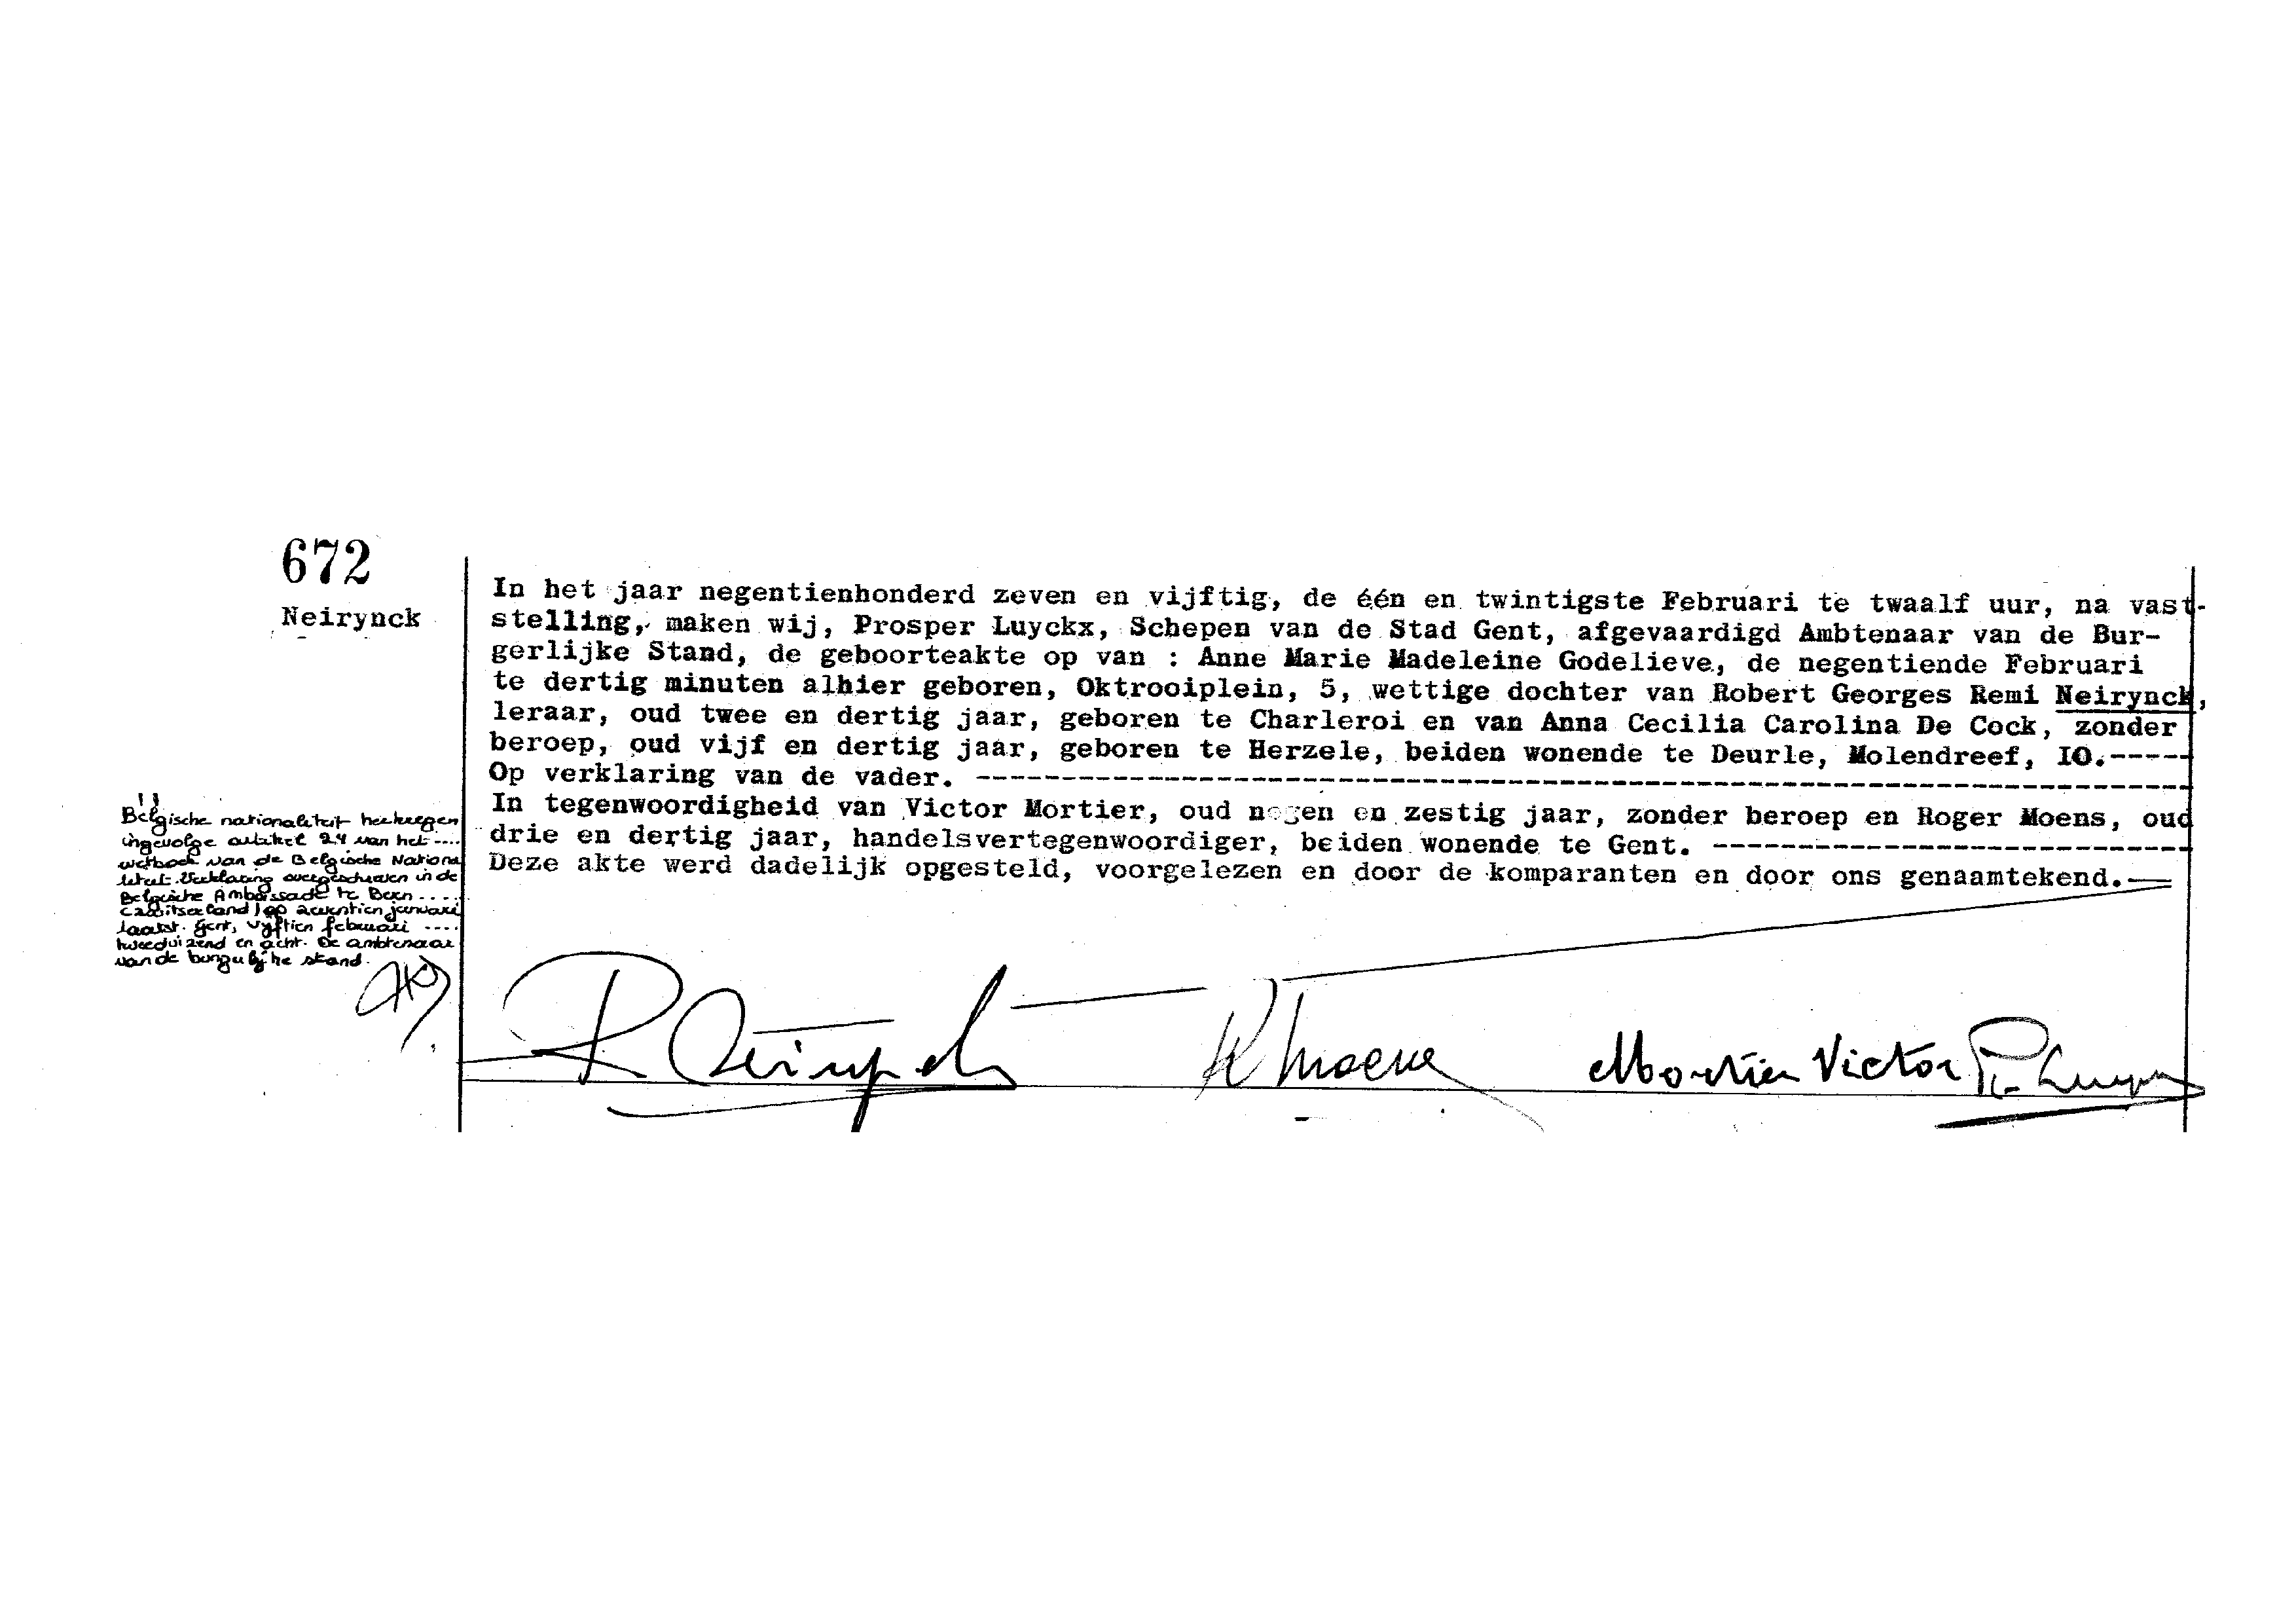 672
Neirynck
In het jaar negentienhonderd zeven en vijftig, de één en twintigste Februari te twaalf uur, na vast-
stelling, maken wij, Prosper Luyckx, Schepen van de Stad Gent, afgevaardigd Ambtenaar van de Bur-
gerlijke Stand, de geboorteakte op van : Anne Marie Madeleine Godelieve, de negentiende Februari
te dertig minuten alhier geboren, Oktrooiplein, 5, wettige dochter van Robert Georges Remi Neirynck,
leraar, oud twee en dertig jaar, geboren te Charleroi en van Anna Cecilia Carolina De Cock, zonder
beroep, oud vijf en dertig jaar, geboren te Herzele, beiden wonende te Deurle, Molendreef, IO.-----
Op verklaring van de vader. ---
In tegenwoordigheid van Victor Mortier, oud negen en zestig jaar, zonder beroep en Roger Moens, oud
drie en dertig jaar, handelsvertegenwoordiger, beiden wonende te Gent. ---
Deze akte werd dadelijk opgesteld, voorgelezen en door de komparanten en door ons genaamtekend.—
Belgische nationaliteit herkregen
ingevolge artikel 24 van het ----
wetboek van de Belgische Nationa
liteit. Verklaring overgeschreven in de
Belgische Ambassade te Bern ----
(Zwitserland) op zeventien januari
laatst. Gent, vyftien februari ----
tweeduizend en acht. De ambtenaar
van de burgerlijke stand.
R Neirynck
R Moens
Mortier Victor